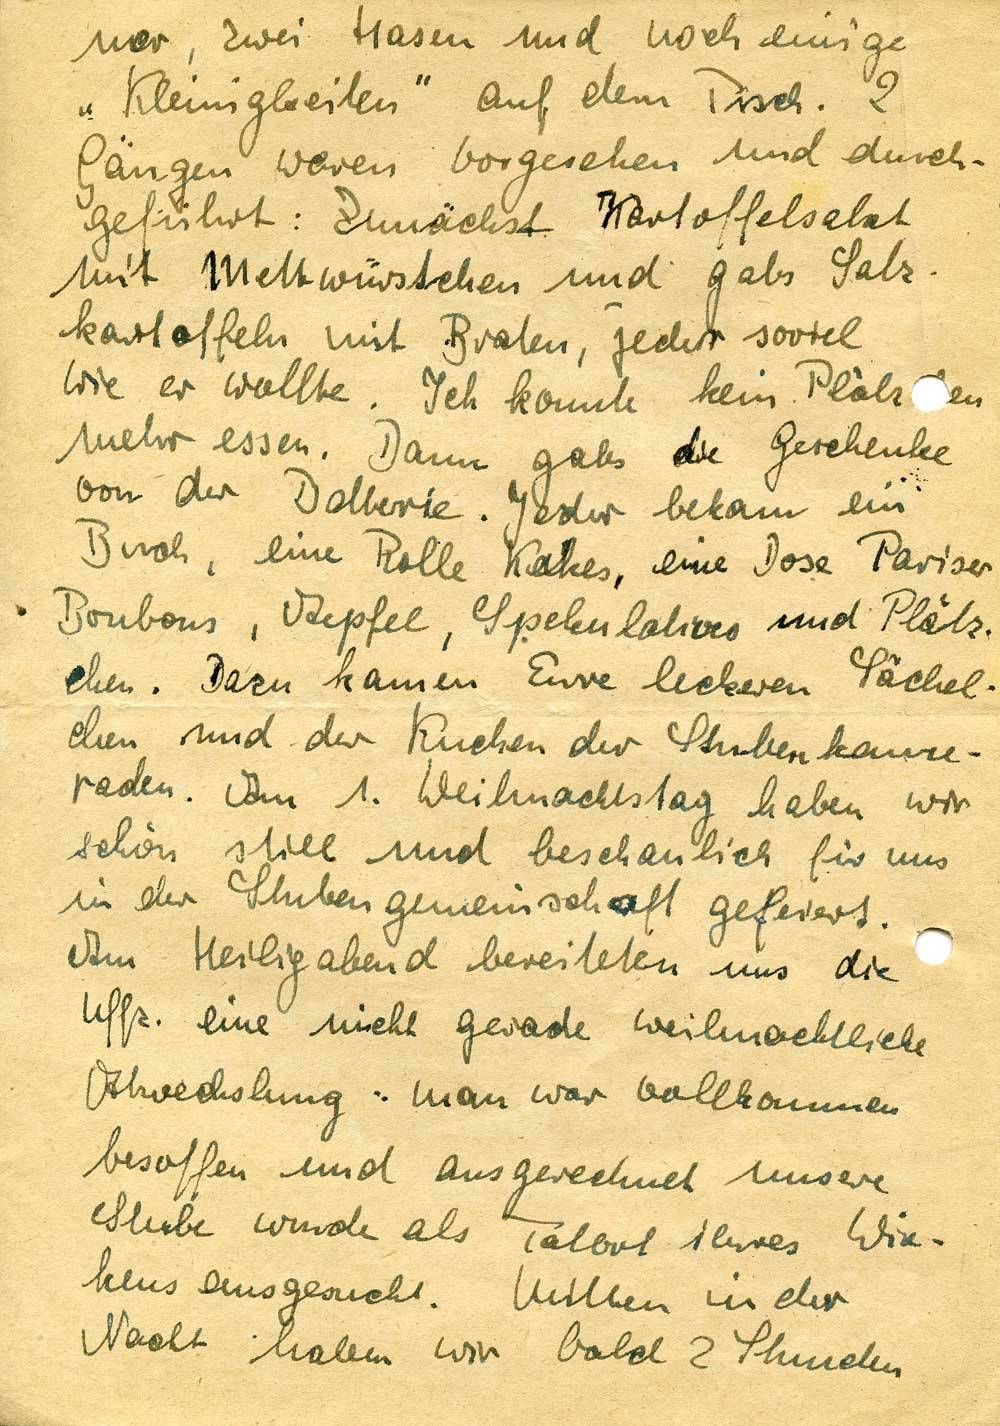 ner, zwei Hasen und noch einige
„Kleinigkeiten" auf dem Tisch. 2
Gängen waren vorgesehen und durch-
geführt: Zunächst Kartoffelsalat
mit Mettwürstchen und gabs Salz-
kartoffeln mit Braten, jeder soviel
wie er wollte. Ich konnte kein Plätzchen
mehr essen. Dann gabs die Geschenke
von der Batterie. Jeder bekam ein
Buch, eine Rolle Kekes, eine Dose Pariser
Bonbons, Aepfel, Spekulatius und Plätz-
chen. Dazu kamen Eure leckeren Sächel-
chen und der Kuchen der Stubenkame-
raden. Am 1. Weihnachtstag haben wir
schön still und beschaulich für uns
in der Stubengemeinschaft gefeiert.
Am Heiligabend bereiteten uns die
Uffz. eine nicht gerade weihnachtliche
Abwechslung: man war vollkommen
besoffen und ausgerechnet unsere
Stube wurde als Tatort ihres Wir-
kens ausgesucht. Mitten in der
Nacht haben wir bald 2 Stunden